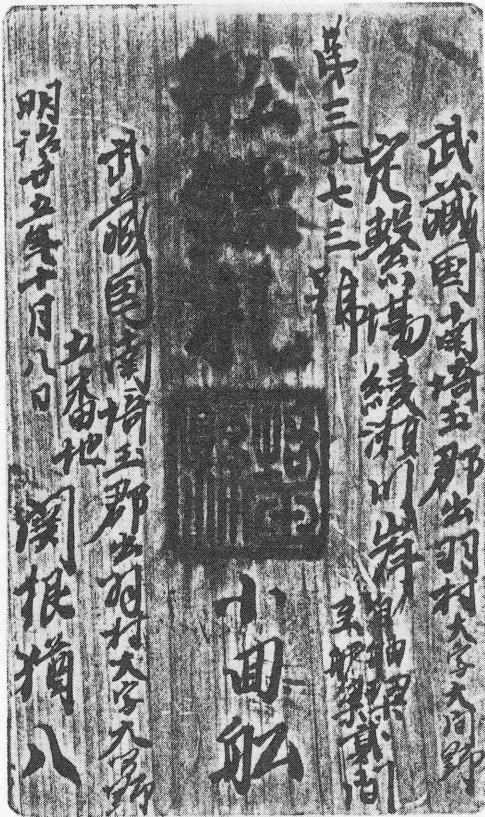 武藏国南埼玉郡出羽村大字大間野
定繋場綾瀬川岸
至艫梁貳間
第三九七三號
船鑑札
埼玉
小回舩
武藏国南埼玉郡出羽村大字大間野
五番地
関根猶八
明治廿五年十月八日